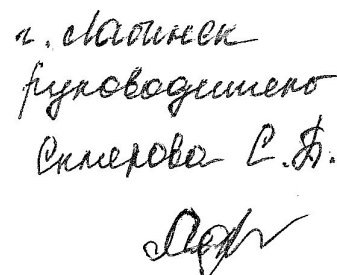 г. Лабинск
руководитель
Склярова С.Б.